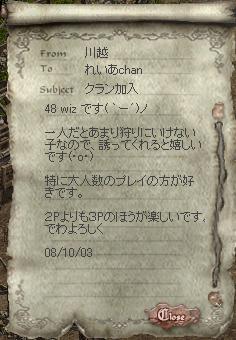 From 川越
To れいあchan
Subject クラン加入
48 wiz です(｀ー´)ノ
一人だとあまり狩りにいけない
子なので、誘ってくれると嬉しい
です(･o･)
特に大人数のプレイの方が好
きです。
2Pよりも3Pのほうが楽しいです。
でわよろしく
08/10/03
Close